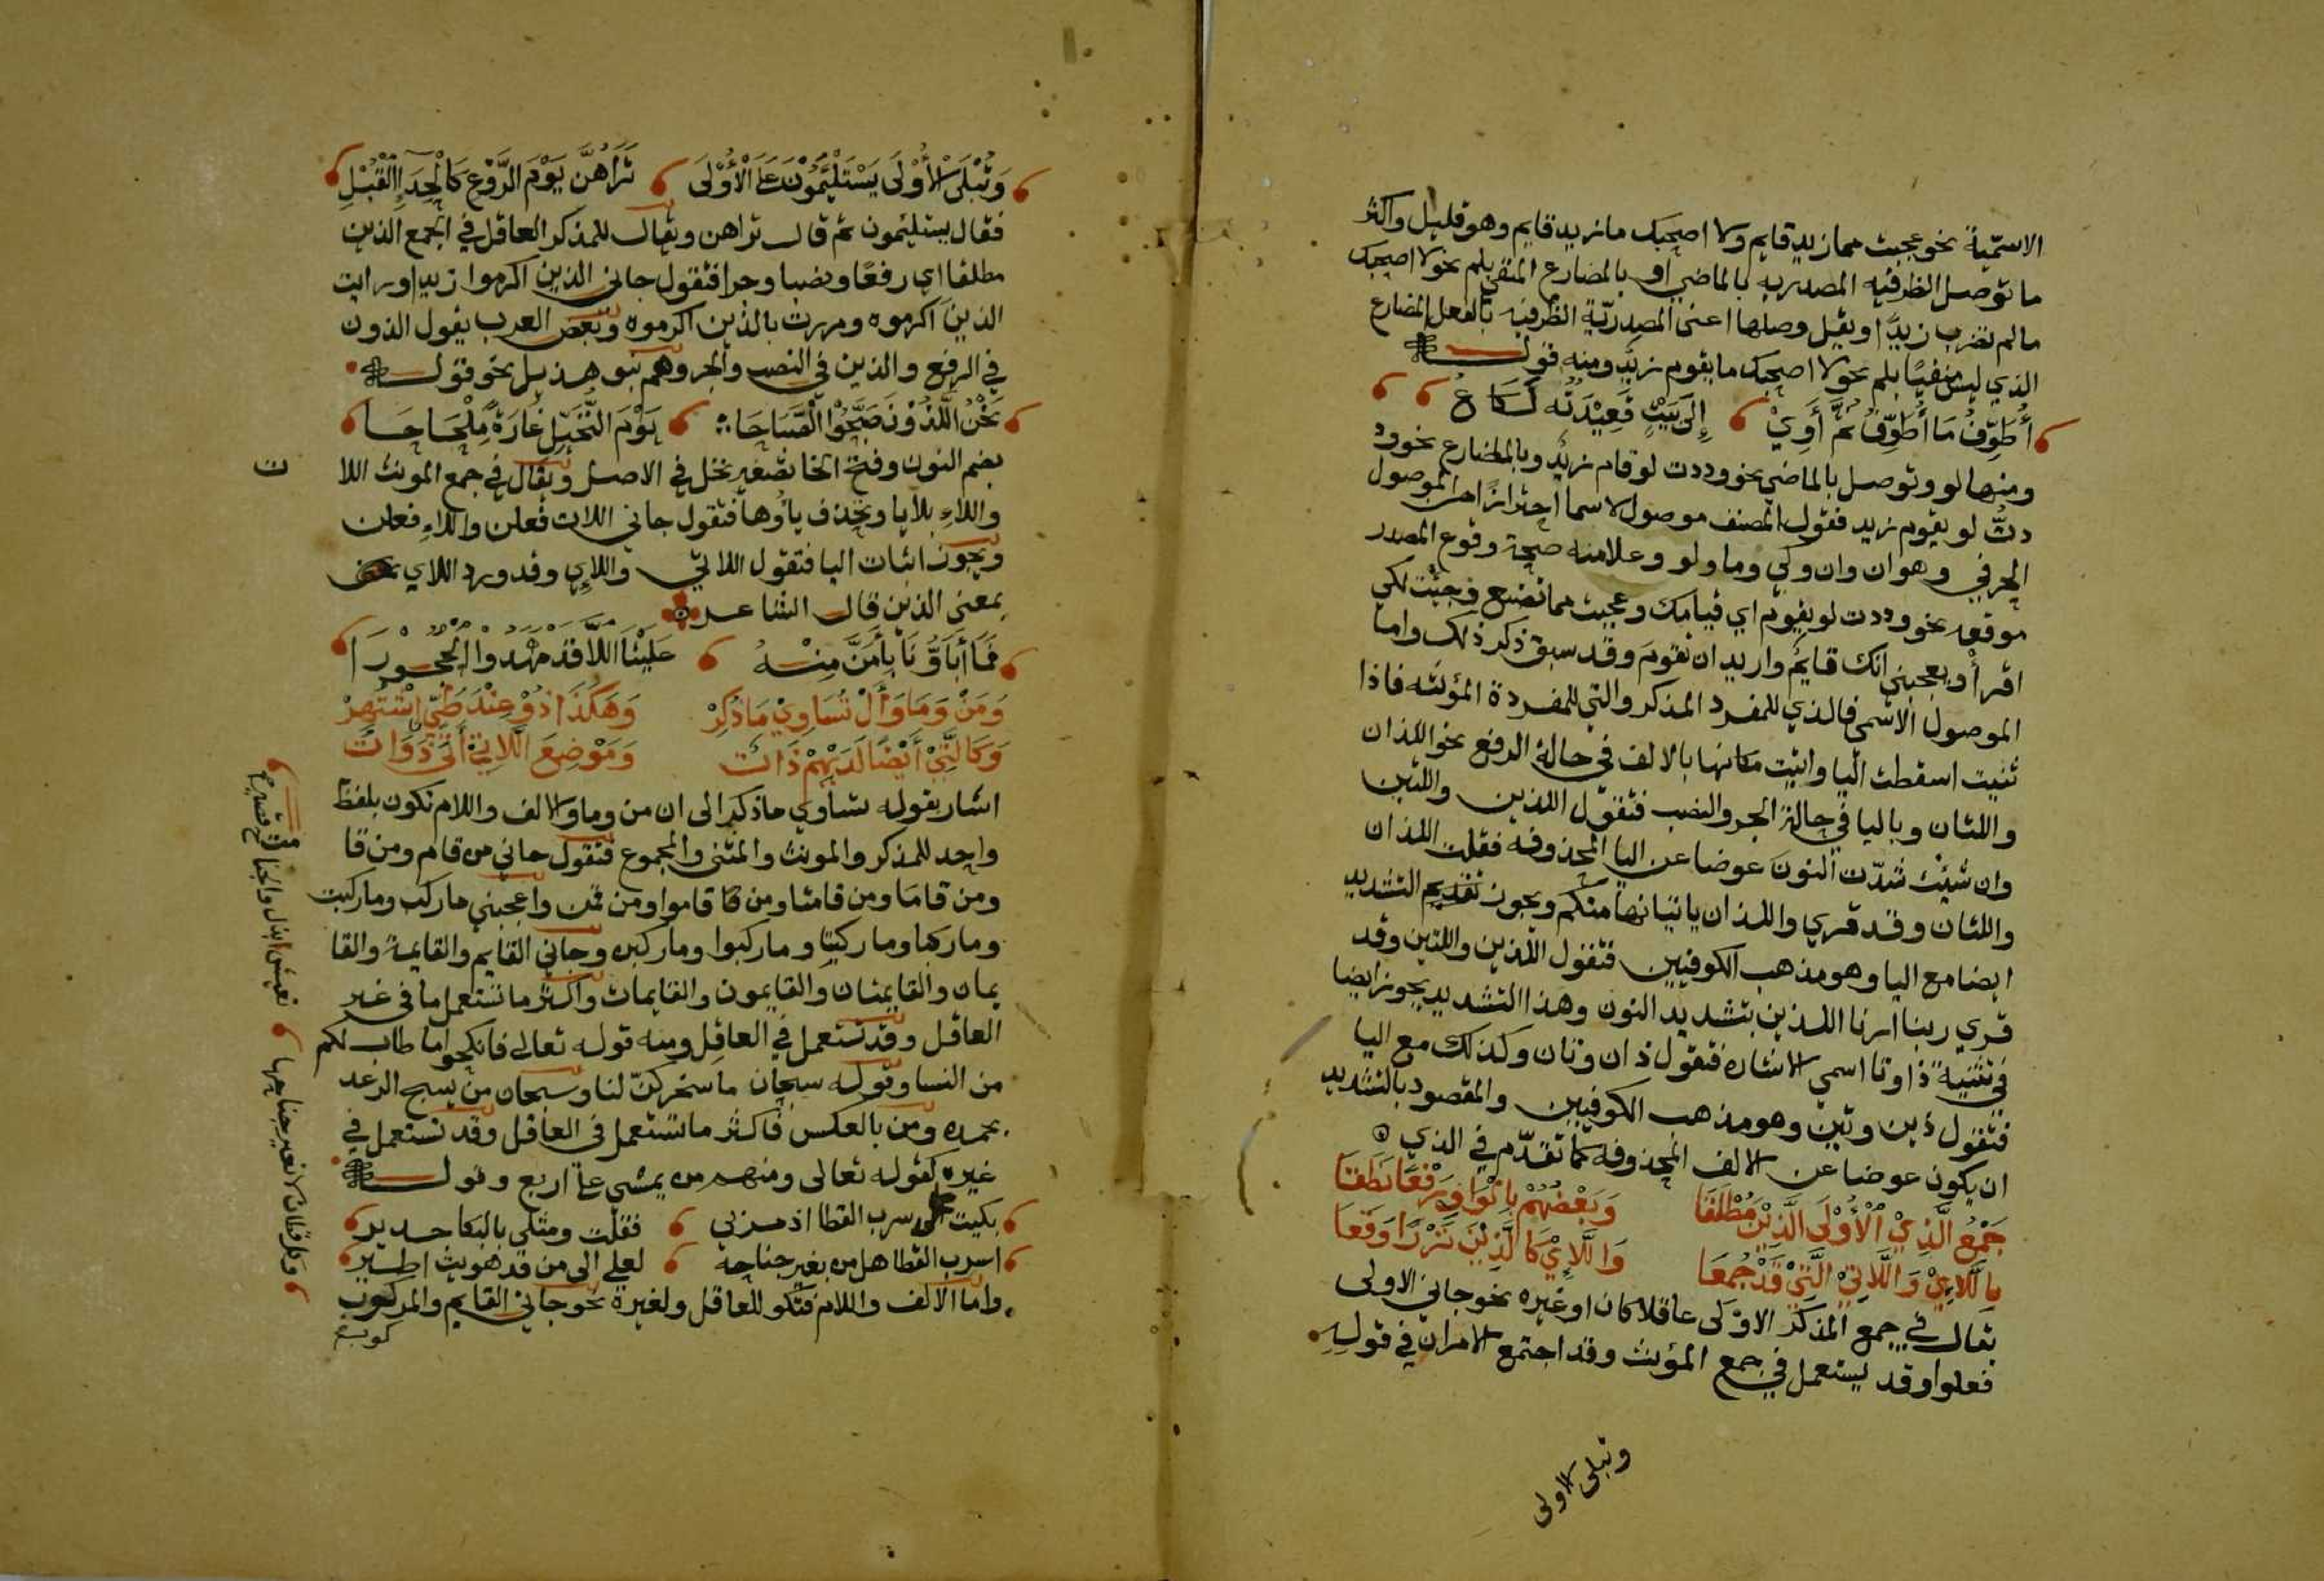 الاسمّية نحو عجبت مما زيد قايم ولا اصحبك ما زيد قايم وهو قليل واكثر
ما توصل الظرفيه المصدريه بالماضي او بالمضارع المنفي بلم نحو لا اصحبك
مالم تضرب زيدًا ويقل وصلها اعنى المصدريّة الظرفيه بالفعل المضارع
الذي ليس منفيًا بلم نحو لا اصحبك ما يقوم زيدٌ ومنه قولـــه
أُطَوِّفُ مَا أُطَوِّفُ ثُمَّ أَوِيْ إِلَى بَيْتٍ قَعِيْدَتُه لَكَاعُ
ومنها لو وتوصل بالماضي نحو وددت لو قام زيدٌ وبالمضارع نحو ود
دتُّ لو يقوم زيد فقول المصنف موصول الاسما احترازًا من الموصول
الحرفي وهو ان وان وكي وما ولو وعلامته صحة وقوع المصدر
موقعه نحو وددت لو يقوم اي قيامك وعجبت مما تصنع وجئت لكي
اقرأ ويعجبني انك قايمٌ واريد ان تقوم وقد سبق ذكر ذلك واما
الموصول الاسمي فالذي للمفرد المذكر والتي للمفردة المؤنثه فاذا
ثنيت اسقطت اليا واتيت مكانها بالالف في حالة الرفع نحو اللذان
واللتان وباليا في حالة الجر والنصب فتقول اللذين واللتين
وان شئت شدّت النون عوضا عن اليا المحذوفه فقلت اللذان
واللتان وقد قري واللذان ياتيانها منكم ويجوز تقديم التشديد
ايضا مع اليا وهو مذهب الكوفيين فتقول اللذين واللتين وقد
قري ربنا ارنا اللذين بتشديد النون وهذا التشديد يجوز ايضا
في تثنية ذا وتا اسمي الاشاره فتقول ذان وتان وكذلك مع اليا
فتقول ذين وتين وهو مذهب الكوفيين والمقصود بالتشديد
ان يكون عوضا عن الالف المحذوفه كما تقدّم في الذي
جَمْعُ الَّذِيْ الْأُوْلَى الَّذِيْنَ مُطْلَقَا وَبَعْضُهُمْ بِالْوَاوِ رَفْعًا نَطَقَا
بِاللَّايِيْ وَاللَّاتِيْ الَّتِيْ قَدْ جُمِعَا وَاللَّاءِيْ كَالَّذِيْنَ نَزْرًا وَقَعَا
يقال في جمع المذكر الاوْلى عاقلا كان او غيره نحو جاني الاولى
فعلوا وقد يستعمل في جمع المؤنث وقد اجتمع الامران في قولِهِ
وتبلى الاولى
وَتُبْلَى الْأُوْلَى يَسْتَلْئِمُوْنَ عَلَى الْأُوْلَى تَرَاهُنَّ يَوْمَ الرَّوْعِ كَالْحِدَإِ الْقُبْلِ
فقال يستلئمون ثم قال تراهن ويقال للمذكر العاقل في الجمع الذين
مطلقا اي رفعًا ونصبا وجرا فتقول جاني الذين اكرموا زيدا ورايت
الذين اكرموه ومررت بالذين اكرموه وبعض العرب يقول الذون
في الرفع والذين في النصب والجر وهم بنو هذيل نحو قولـــه
نَحْنُ اللَّذُوْنَ صَبَّحُوْا الْصَّبَاحَا يَوْمَ النُّخَيْلِ غَارَةً مِلْحَاحَا
بضم النون وفتح الخا تصغير نخل في الاصل ويقال في جمع المونث اللا
ت
واللاءِ بلا يا وتحذف ياؤها فتقول جاني اللات فعلن واللاءِ فعلن
ويجوز اثبات اليا فتقول اللاتي واللاءِي وقد ورد اللاي
بمعنى الذين قال الشاعر
فَمَا أَبَاؤُنَا بِأَمَنَّ مِنْهُ عَلَيْنَا اللَّا قَدْ مَهَّدُوْا الْحُجُوْرَا
وَمَنْ وَمَا وَأَلْ تُسَاوِيْ مَا ذُكِرْ وَهَكَذَا ذُوْ عِنْدَ طَيِّئٍ اشْتُهِرْ
وَكَالَّتِيْ أَيْضًا لَدَيْهِمْ ذَاتُ وَمَوْضِعَ اللَّاتِيْ أَتَى ذَوَاتُ
اشار بقوله تساوي ما ذكر الى ان من وما والالف واللام تكون بلفظ
واحد للمذكر والمونث والمثنى والمجموع فتقول جاني من قام ومن قا
ومن قاما ومن قامتا ومن قاموا ومن قمن واعجبني ماركب وماركبت
وماركبا وماركبتا وماركبوا وماركبن وجاني القايم والقايمة والقا
يمان والقايمتان والقايمون والقايمات واكثر ما تستعمل ما في غير
العاقل وقد تستعمل في العاقل ومنه قوله تعالى فانكحوا ما طاب لكم
من النسا وقوله سبحان ما سخركنّ لنا وسبحان من يسبح الرعد
بحمده ومن بالعكس فاكثر ما تستعمل في العاقل وقد تستعمل في
غيره كقوله تعالى ومنهم من يمشي على اربع وقولـــه
بكيت على سرب القطا اذ مررن بي فقلت ومثلي بالبكا جدير
اسرب القطا هل من يعير جناحه لعلي الى من قد هويت اطير
واما الالف واللام فتكو للعاقل ولغيره نحو جاني القايم والمركوب